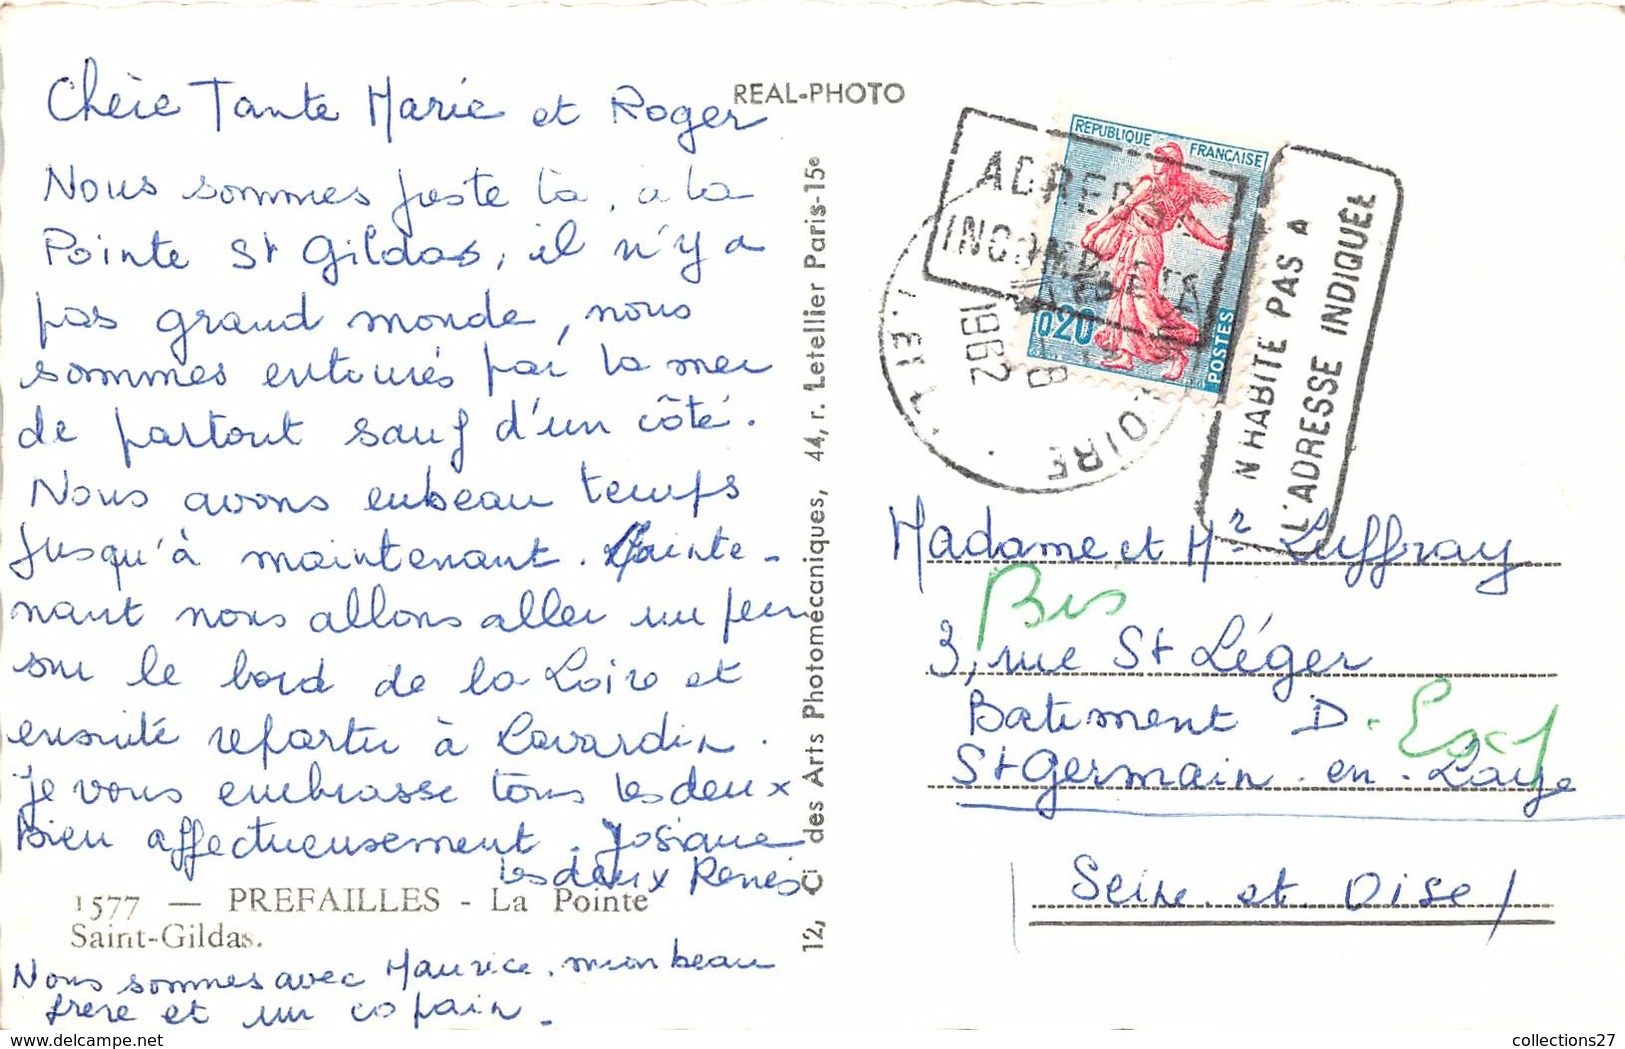 Chère Tante Marie et Roger
Nous sommes juste là, à la
Pointe St Gildas, il n'y a
pas grand monde, nous
sommes entourés par la mer
de partout sauf d'un côté.
Nous avons eu beau temps
jusqu'à maintenant. Mainte-
nant nous allons aller un peu
sur le bord de la Loire et
ensuite repartir à Lavardin.
Je vous embrasse tous les deux
Bien affectueusement. Josiane
les deux Renés
1577 — PREFAILLES - La Pointe
Saint-Gildas.
Nous sommes avec Maurice, mon beau
frère et un copain.
REAL-PHOTO
12, Cie des Arts Photomécaniques, 44, r. Letellier Paris-15e
REPUBLIQUE FRANCAISE
0,20
POSTES
ADRESSE
INCOMPLETE
1962
8
LOIRE
N'HABITE PAS A
L'ADRESSE INDIQUÉE
Madame et Mr Luffray
Bis
3, rue St Léger
Batiment D.
St Germain-en-Laye
(Seine et Oise)
collections27